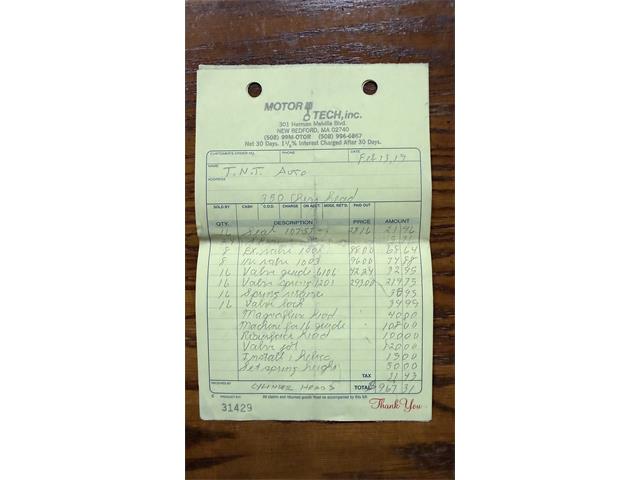 MOTOR TECH, inc.
301 Herman Melville Blvd.
NEW BEDFORD, MA 02740
(508) 99M-OTOR (508) 996-6867
Net 30 Days. 1½% Interest Charged After 30 Days.
CUSTOMER'S ORDER NO. PHONE DATE Feb 13, 17
NAME T.N.T. Auto
ADDRESS
350 Head
SOLD BY CASH C.O.D. CHARGE ON ACCT. MDSE. RET'D. PAID OUT
QTY. DESCRIPTION PRICE AMOUNT
16 Seal 28 16 21.96
8 Ex. valve 1002 88.00 68.64
8 In. valve 1003 96.00 74.88
16 Valve guide 6106 42.24 32.95
16 Valve spring 1201 293.00
16 Spring
16 Valve lock 39.95
Magnaflux head 40.00
Machine for 16 guide 108.00
Resurface head 100.00
Valve job 120.00
Install 1 helico 15.00
Set spring height 50.00
TAX 31 43
RECEIVED BY CYLINDER HEADS TOTAL 967 31
PRODUCT 610 All claims and returned goods MUST be accompanied by this bill.
31429 Thank You